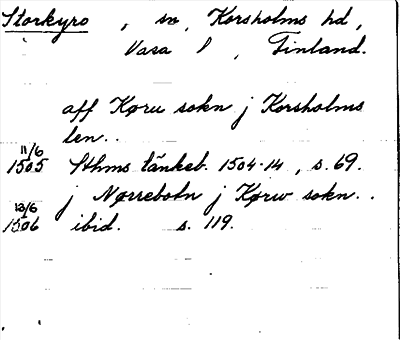 Storkyro, sn, Korsholms hd,
Vasa l, Finland.
aff Køru sokn j Korsholms
len..
11/6
1505 Sthms tänkeb. 1504-14, s. 69.
j Nørrebotn j Kørw sokn..
13/6
1506 ibid. s. 119.